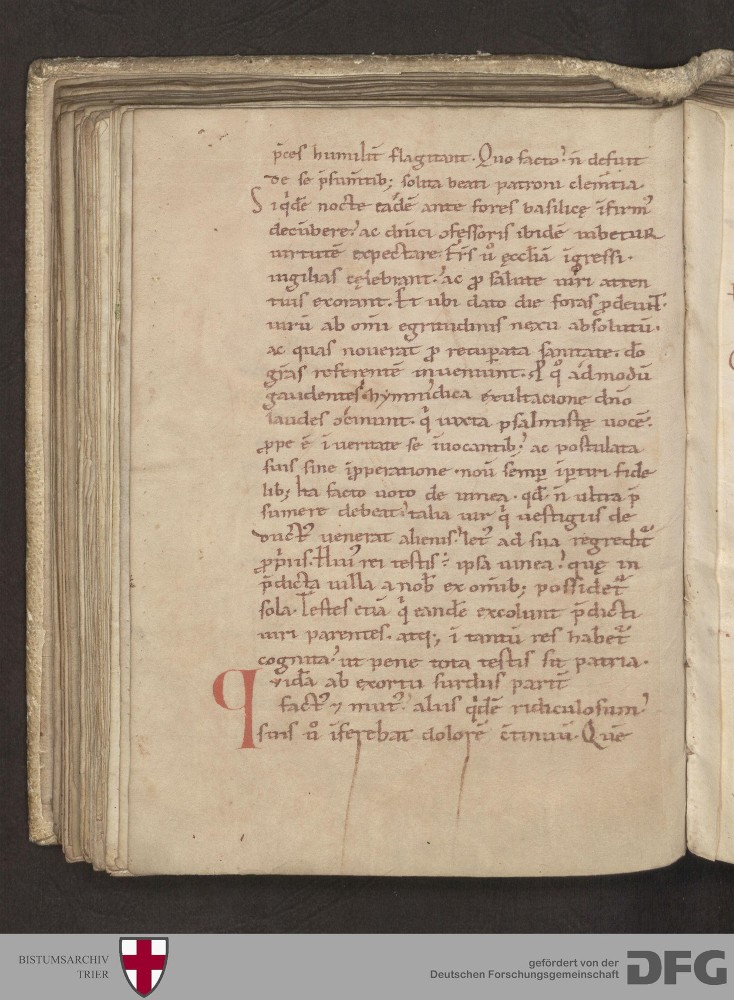 p̄ces humilit̄ flagitant. Quo facto. n̄ defuit
de se p̄sum̄tib; solita beati patroni clem̄tia.
Siq̇dē nocte eadē ante fores basilicę īfirm᾽
decūbere. ac diuici ↄfessoris ibidē iubetur
uirtutē expectare. fr̄s u̇ ęccl̄ia īgressi.
uigilias cęlebrant. ac ꝓ salute uiri atten
tius exorant. Et ubi dato die foras ꝓdeunt.
uirū ab om̄i egritudinis nexu absolutū.
ac quas nouerat ꝓ recuꝑata sanitate. dō
gr̄as referentē inueniunt. q̇ admodū
gaudentes. hymnidica exultacione dn̄o
laudes ↄcinunt. q̇ iuxta psalmistę uocē.
ꝓpe ē ī ueritate se īuocantib; ac postulata
suis sine īꝓperatione. nou̇ semꝑ īꝑtiri fide
lib; Ita facto uoto de uinea. qd̄ n̄ ultra p̄
sumere debeat. talia uir q̇ uestigiis de
duct᾽ uenerat alienis. let᾽ ad sua regredit᷑
ꝓpriis. Hui᾽ rei testis. ipsa uinea. quę in
p̄dicta uilla a nob᾽ ex om̄ib; possidet᷑
sola. Testes etiā q̇ eandē excolunt p̄dicti
uiri parentes. atq; ī tantū res habet᷑
cognita. ut pene tota testis sit patria.
Quidā ab exortu surdus parit̄
fact᾽ & mut᾽. aliis q̇dē ridiculosum.
suis u̇ īferebat dolorē ↄtinuū. Quē
BISTUMSARCHIV
TRIER
gefördert von der
Deutschen Forschungsgemeinschaft
DFG